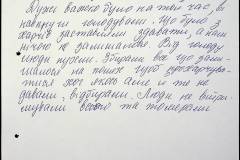 Дуже важко було на той час, бо
навкруги голодували. Що було з
харчів заставляли здавати, а нам
нічого не залишалось. Від голоду
люди пухли. Збирали все що зали-
шилося на полях щоб прохарчува-
тися хоч якось але и те не
давали, відбирали. Люди не витри-
мували всього та помирали.